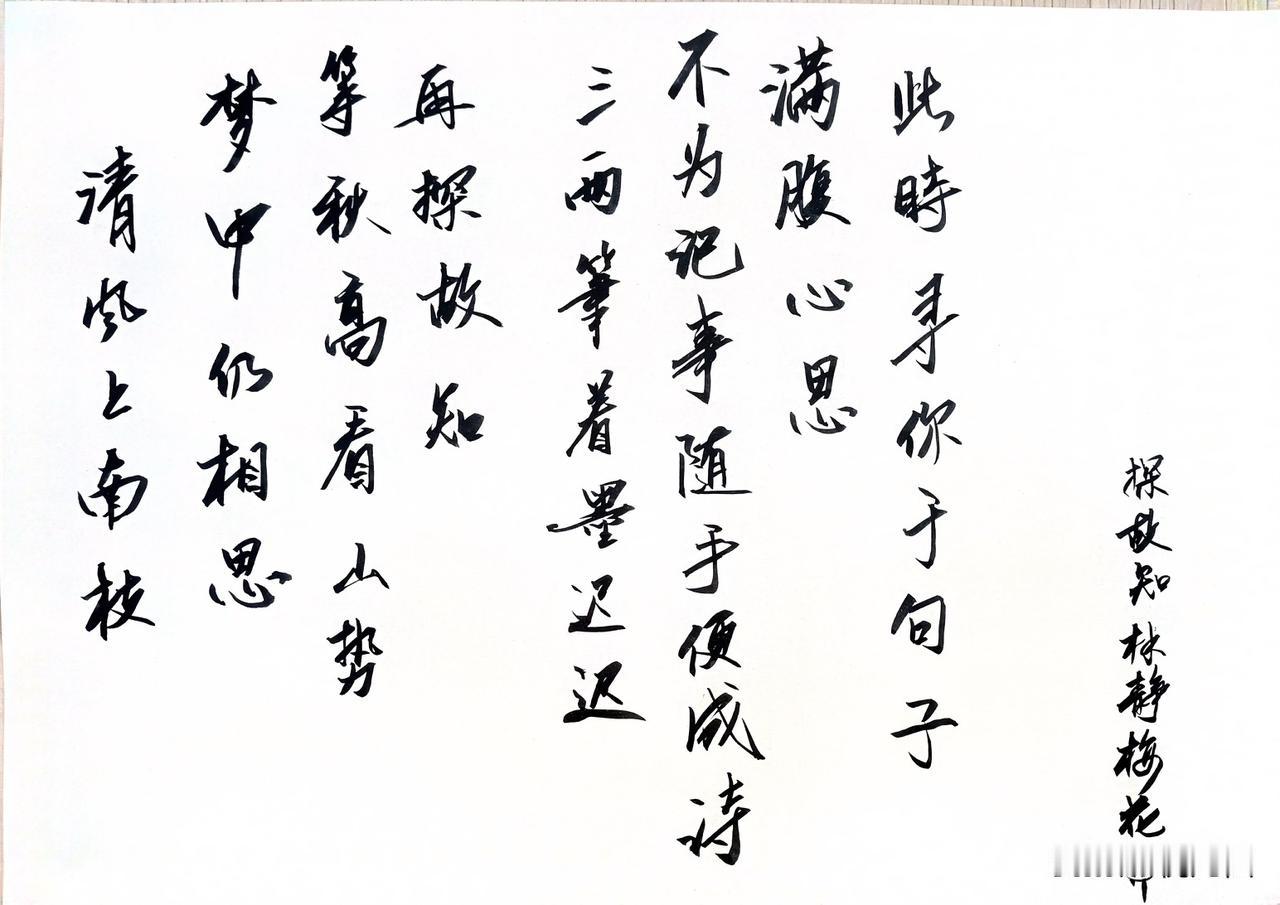 探故知林静梅花
此時寻你于句子
满腹心思
不为记事随手便成诗
三两筆着墨迟迟
再探故知
等秋高看山势
梦中仍相思
清风上南枝